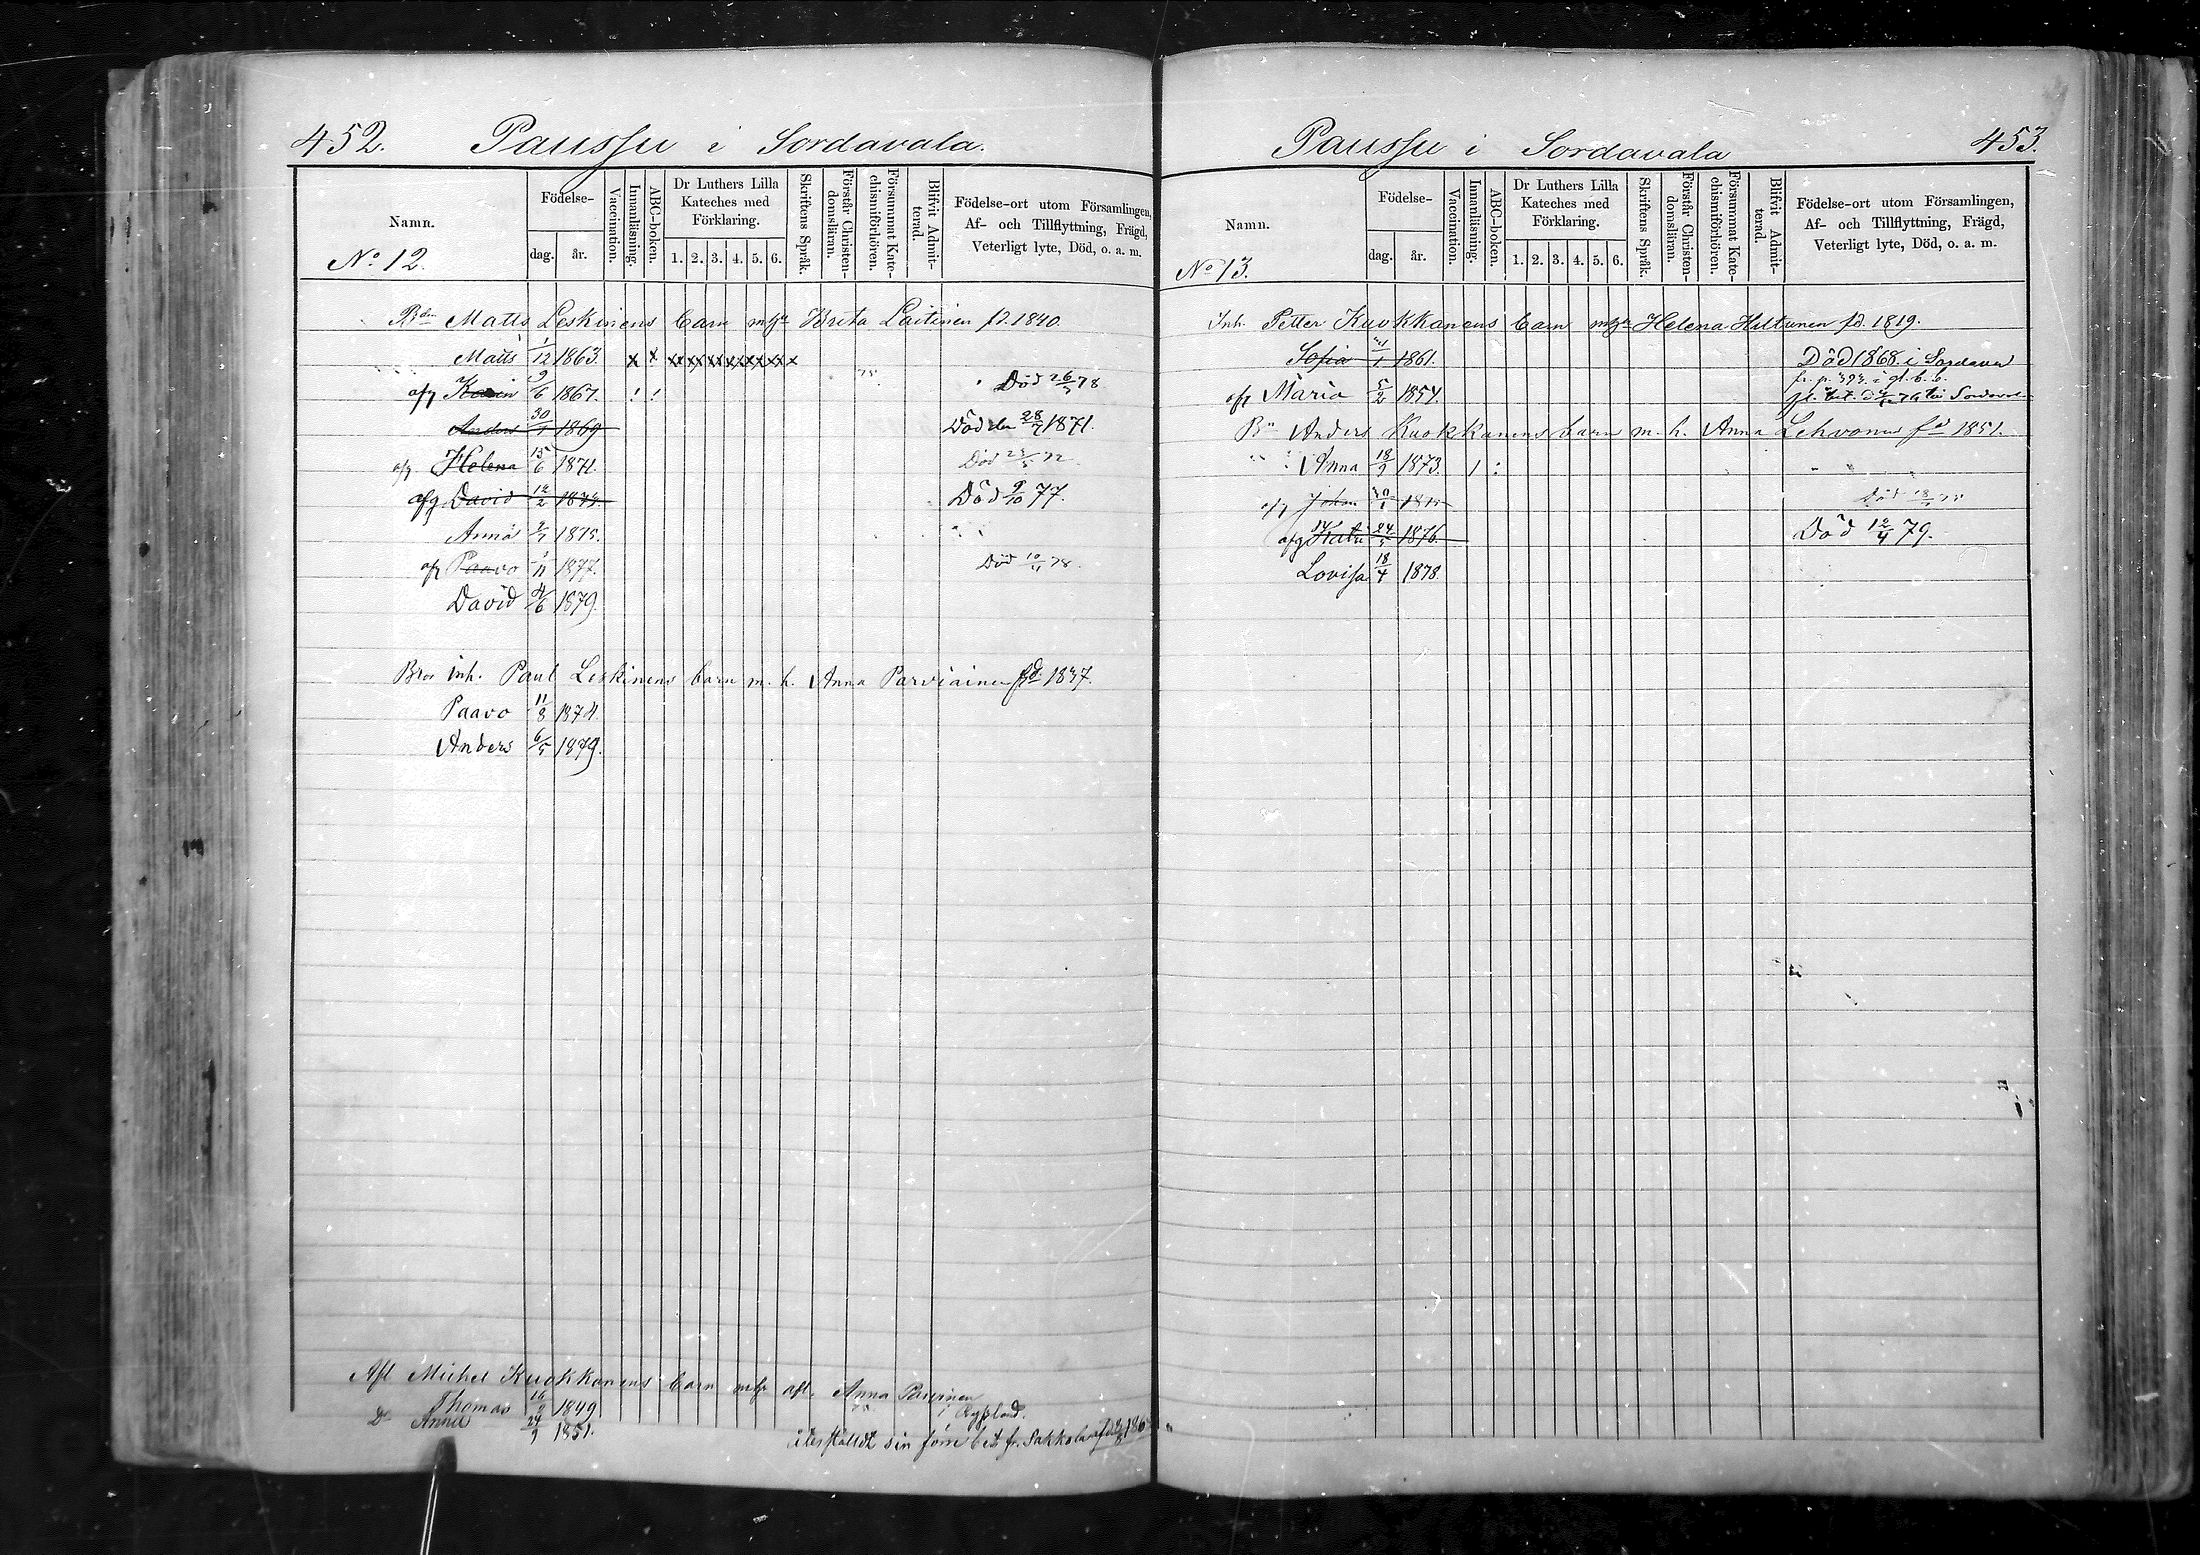 452. Paussu i Sordavala.
Namn.
Födelse-
dag. år.
Vaccination.
Innanläsning.
ABC-boken.
Dr Luthers Lilla Kateches med Förklaring.
1. 2. 3. 4. 5. 6.
Skriftens Språk.
Förstår Christendomsläran.
Försummat Katechismiförhören.
Blifvit Admitterad.
Födelse-ort utom Församlingen,
Af- och Tillflyttning, Frägd,
Veterligt lyte, Död, o. a. m.
No 12.
Matts Leskinens barn Brita Laitinen fd. 1840.
Matts 1/12 1863. x x xx xx xx xx xx xx x
afg Karin 9/6 1867. ! ! Död 26/3 78
Anders 30/1 1869 Död den 28/7 1871.
afg. Helena 15/6 1871. Död 72.
afg David 12/2 1874. Död 9/10 77.
Anna 1875.
afg Paavo 1/11 1877. Död 10/11 78.
David 4/6 1879.
inh. Paul Leskinens barn m. h. Anna Parviainen fd. 1837.
Paavo 11/8 1874.
Anders 6/5 1879.
Afl Michel Kuokkanens barn afl. Anna
Thomas 16/2 1849
Anna 24/9 1851.
453. Paussu i Sordavala
Namn.
Födelse-
dag. år.
Vaccination.
Innanläsning.
ABC-boken.
Dr Luthers Lilla Kateches med Förklaring.
1. 2. 3. 4. 5. 6.
Skriftens Språk.
Förstår Christendomsläran.
Försummat Katechismiförhören.
Blifvit Admitterad.
Födelse-ort utom Församlingen,
Af- och Tillflyttning, Frägd,
Veterligt lyte, Död, o. a. m.
No 13.
Inh. Petter Kuokkanens barn Helena Hiltunen fd. 1819.
Sofia 1861. Död 1868 i Sordaval
fr. p. 393. i gl. b. b.
afg Maria 5/2 1854.
Anders Kuokkanens barn m. h. Anna Lehvonen fd 1851.
Anna 18/9 1873.
afg Johan 1875 Död
afg Katri 24/5 1876. Död 12/4 79.
Lovisa 18/4 1878.